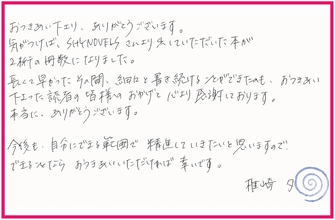 おつきあい下さり、ありがとうございます。
気がつけば、SHYNOVELSさんより出していただいた本が
2桁の冊数になりました。
長くも早かったその間、細々と書き続けることができたのも、おつきあい
下さった読者の皆様のおかげと心より感謝しております。
本当に、ありがとうございます。
今後も、自分にできる範囲で精進していきたいと思いますので
できることなら おつきあいいただければ幸いです。
椎崎 夕